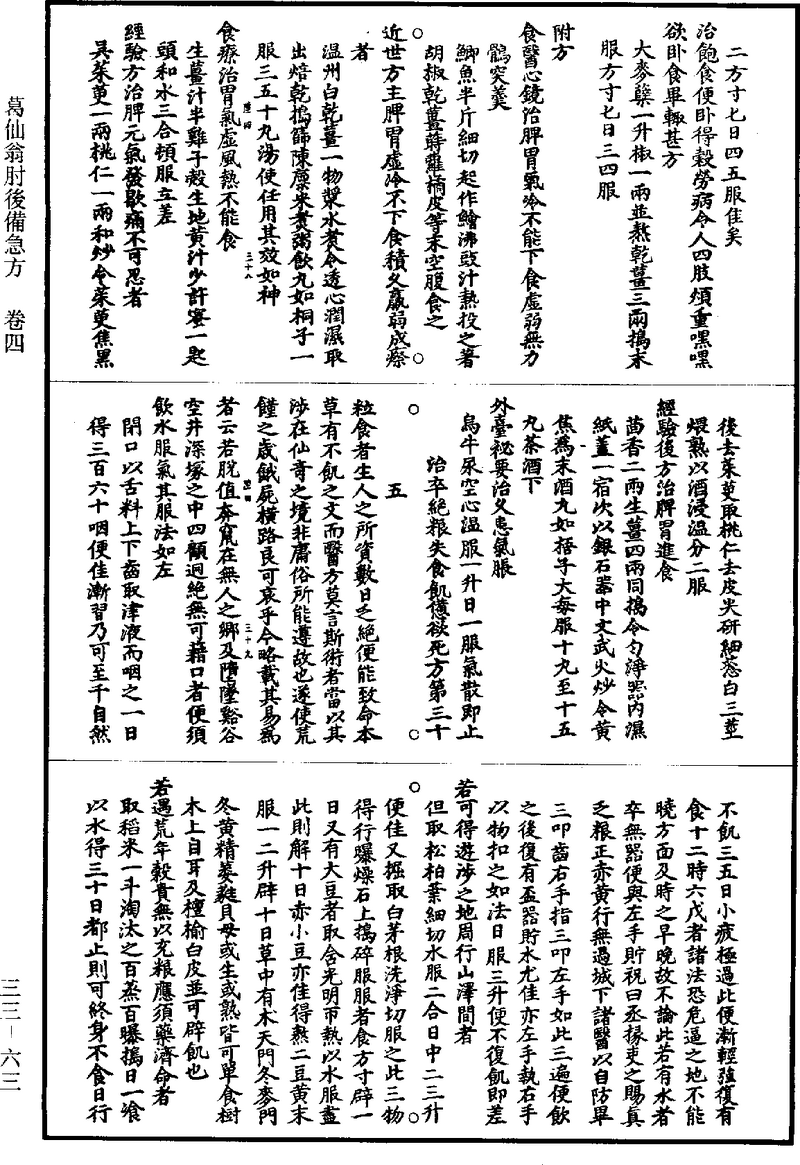 葛仙翁肘後備急方　卷四
二方寸七日四五服佳矣
治飽食便卧得穀勞病令人四肢煩重嘿嘿
欲卧食畢輒甚方
大麥糵一升椒一兩並熬乾薑三兩搗末
服方寸七日三四服
附方
食醫心鏡治脾胃氣冷不能下食虛弱無力
鶻突羹
鯽魚半斤細切起作鱠沸豉汁熱投之著
胡椒乾薑蒔蘿橘皮等末空腹食之
近世方主脾胃虛冷不下食積久羸弱成瘵
者
温州白乾薑一物漿水煮令透心潤濕取
出焙乾搗篩陳廪米煮粥飲丸如桐子一
服三五十丸湯使任用其效如神
食療治胃氣虛風熱不能食
三十八
生薑汁半雞子殼生地黄汁少許蜜一匙
頭和水三合頓服立差
經驗方治脾元氣發歇痛不可忍者
吳茱萸一兩桃仁一兩和炒令茱萸焦黑
後去茱萸取桃仁去皮尖研細葱白三莖
煨熟以酒浸温分二服
經驗後方治脾胃進食
茴香二兩生薑四兩同搗令勻淨器内濕
紙蓋一宿次以銀石器中文武火炒令黄
焦爲末酒丸如梧子大每服十丸至十五
丸茶酒下
外臺秘要治久患氣脹
烏牛尿空心温服一升日一服氣散即止
治卒絕粮失食飢憊欲死方第三十
五
粒食者生人之所資數日乏絕便能致命本
草有不飢之文而醫方莫言斯術者當以其
涉在仙奇之境非庸俗所能遵故也遂使荒
饉之歲餓屍横路良可哀乎今略載其易爲
三十九
者云若脱值奔竄在無人之鄉及墮墜谿谷
空井深塚之中四顧迥絕無可藉口者便須
飲水服氣其服法如左
閉口以舌料上下齒取津液而咽之一日
得三百六十咽便佳漸習乃可至千自然
不飢三五日小疲極過此便漸輕强復有
食十二時六戊者諸法恐危逼之地不能
曉方面及時之早晚故不論此若有水者
卒無器便與左手貯祝曰丞掾吏之賜真
乏粮正赤黄行無過城下諸醫以自防畢
三叩齒右手指三叩左手如此三遍便飲
之後復有盃器貯水尤佳亦左手執右手
以物扣之如法日服三升便不復飢即差
若可得遊涉之地周行山澤間者
但取松柏葉細切水服二合日中二三升
便佳又掘取白茅根洗淨切服之此三物
得行曝燥石上搗碎服服者食方寸辟一
日又有大豆者取含光明帀熱以水服盡
此則解十日赤小豆亦佳得熱二豆黄末
服一二升辟十日草中有术天門冬麥門
冬黄精萎蕤貝母或生或熟皆可單食樹
木上自耳及檀榆白皮並可辟飢也
若遇荒年穀貴無以充粮應須藥濟命者
取稻米一斗淘汰之百蒸百曝搗日一飡
以水得三十日都止則可終身不食日行
三三－六三